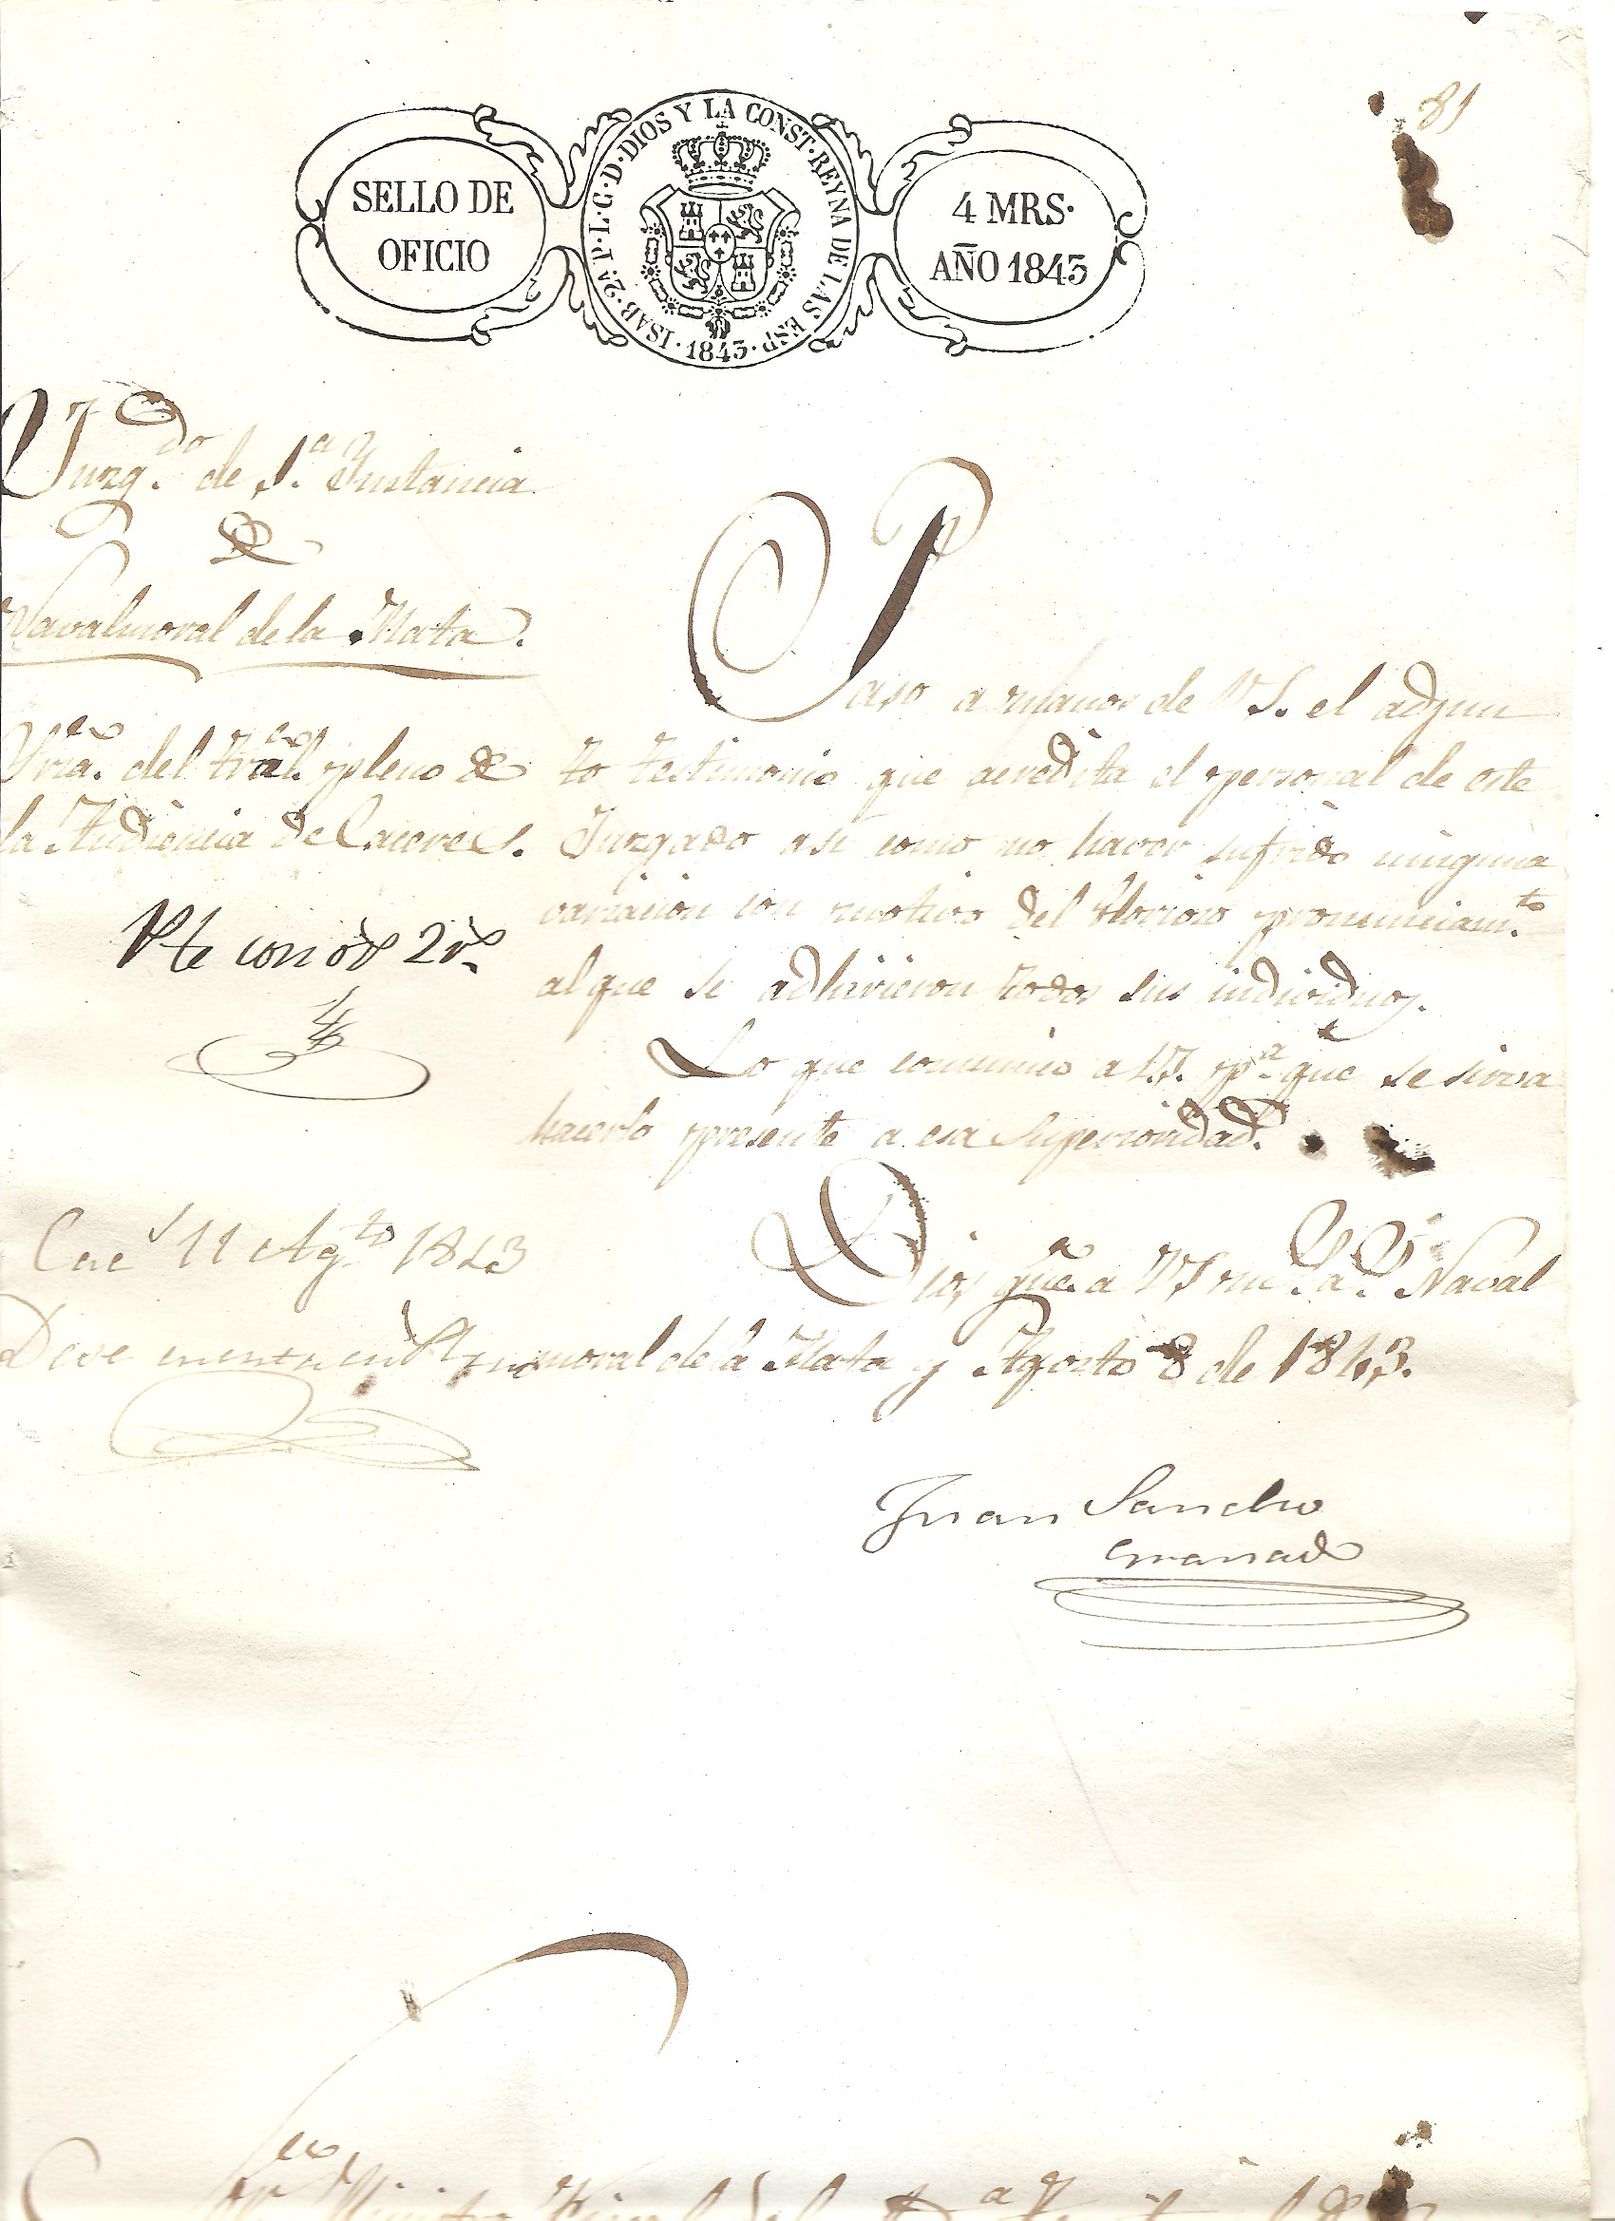 81
SELLO DE
OFICIO
ISAB. 2.ª P. L. G. D. DIOS Y LA CONST. REYNA DE LAS ESP. 1843.
4 MRS.
AÑO 1843
Juzg.do de 1.a Instancia
De
Navalmoral de la Mata.
del pleno de
la Audiencia de Caceres.
Paso a manos de VS. el adjun
to testimonio que acredita el personal de este
Juzgado asi como no haver sufrido ninguna
variacion con motivo del Glorioso pronunciam.to
al que se adhirieron todos sus individuos.
Lo que comunico a VS. p.a que se sirva
hacerlo presente a esa Superioridad.
Dios gue. a VS m.s a.s Naval
moral de la Mata y Agosto 8 de 1843.
Juan Sancho
Granado
Cac.s 11 Ag.to 1843